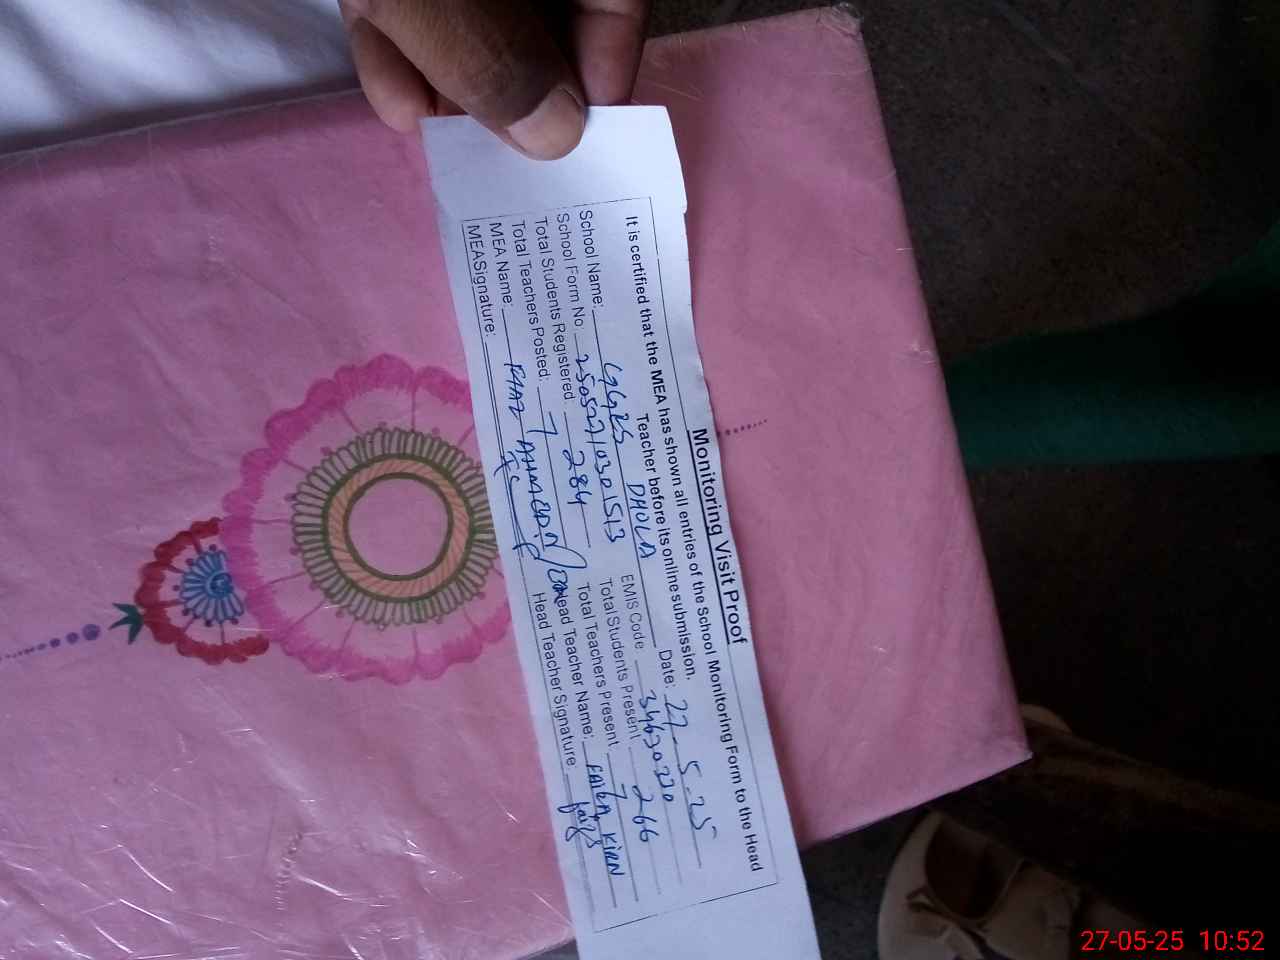 Monitoring Visit Proof
It is certified that the MEA has shown all entries of the School Monitoring Form to the Head
Teacher before its online submission. Date: 27-5-25
School Name: GGES DHOLA EMIS Code 34630330
School Form No: 25052710301513 Total Students Present 266
Total Students Registered: 284 Total Teachers Present 7
Total Teachers Posted: 7 Head Teacher Name: FAIZA KIRN
MEA Name: AHMED Head Teacher Signature:
MEASignature:
27-05-25 10:52